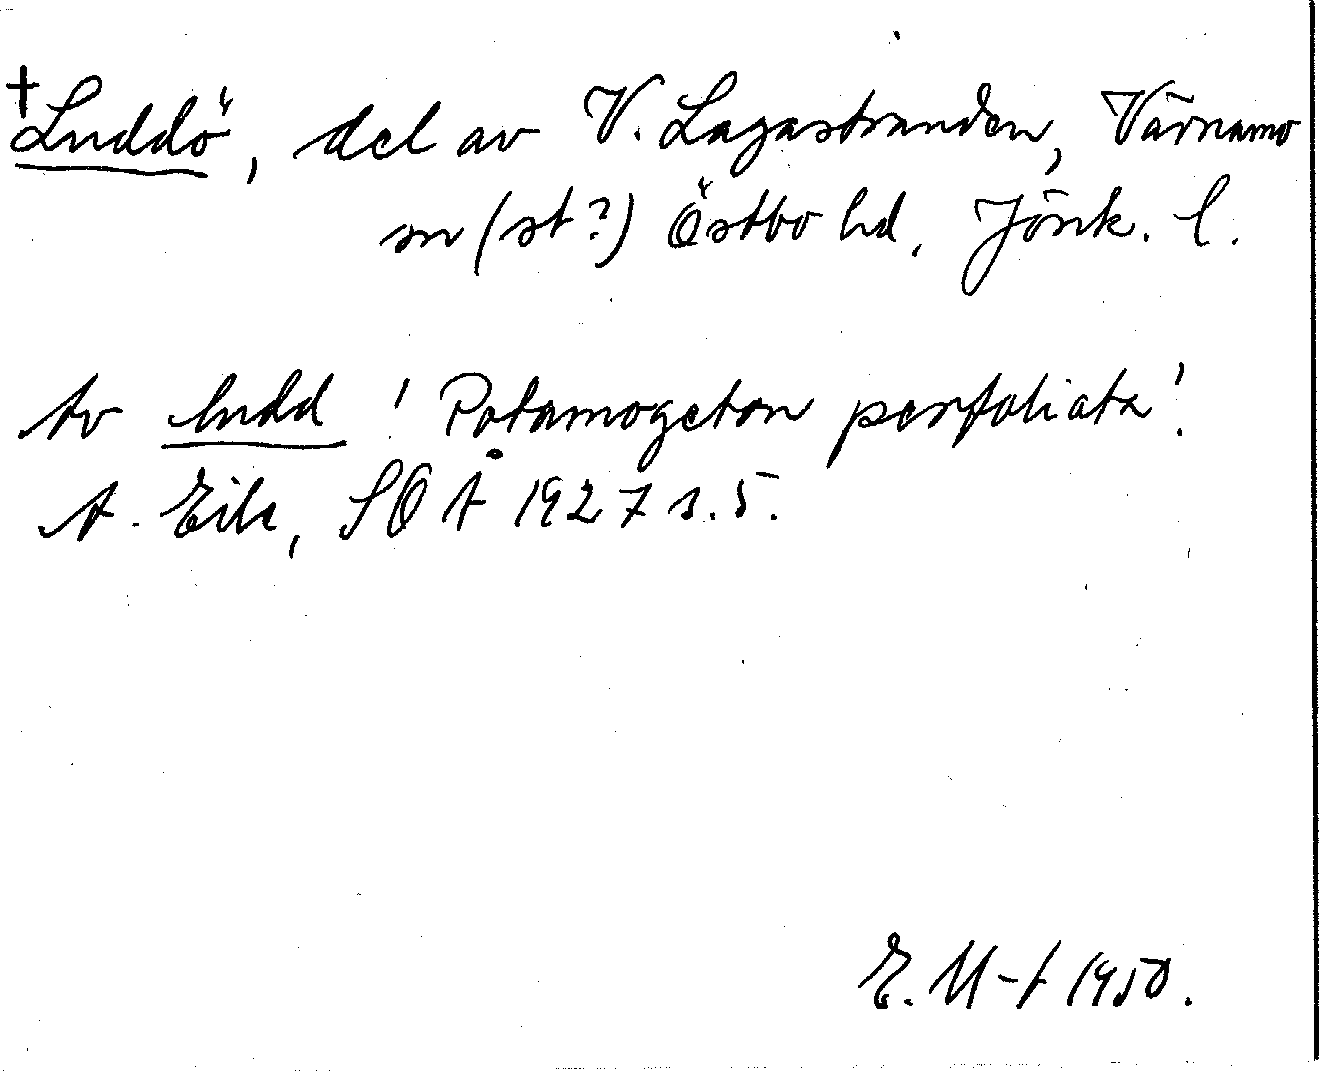 †Luddö, del av V. Lagastranden, Värnamo
sn (st?) Östbo hd, Jönk. l.
Av ludd 'Potamogeton perfoliata'.
A. Eile, SOÅ 1927 s. 5.
E. M-t 1950.